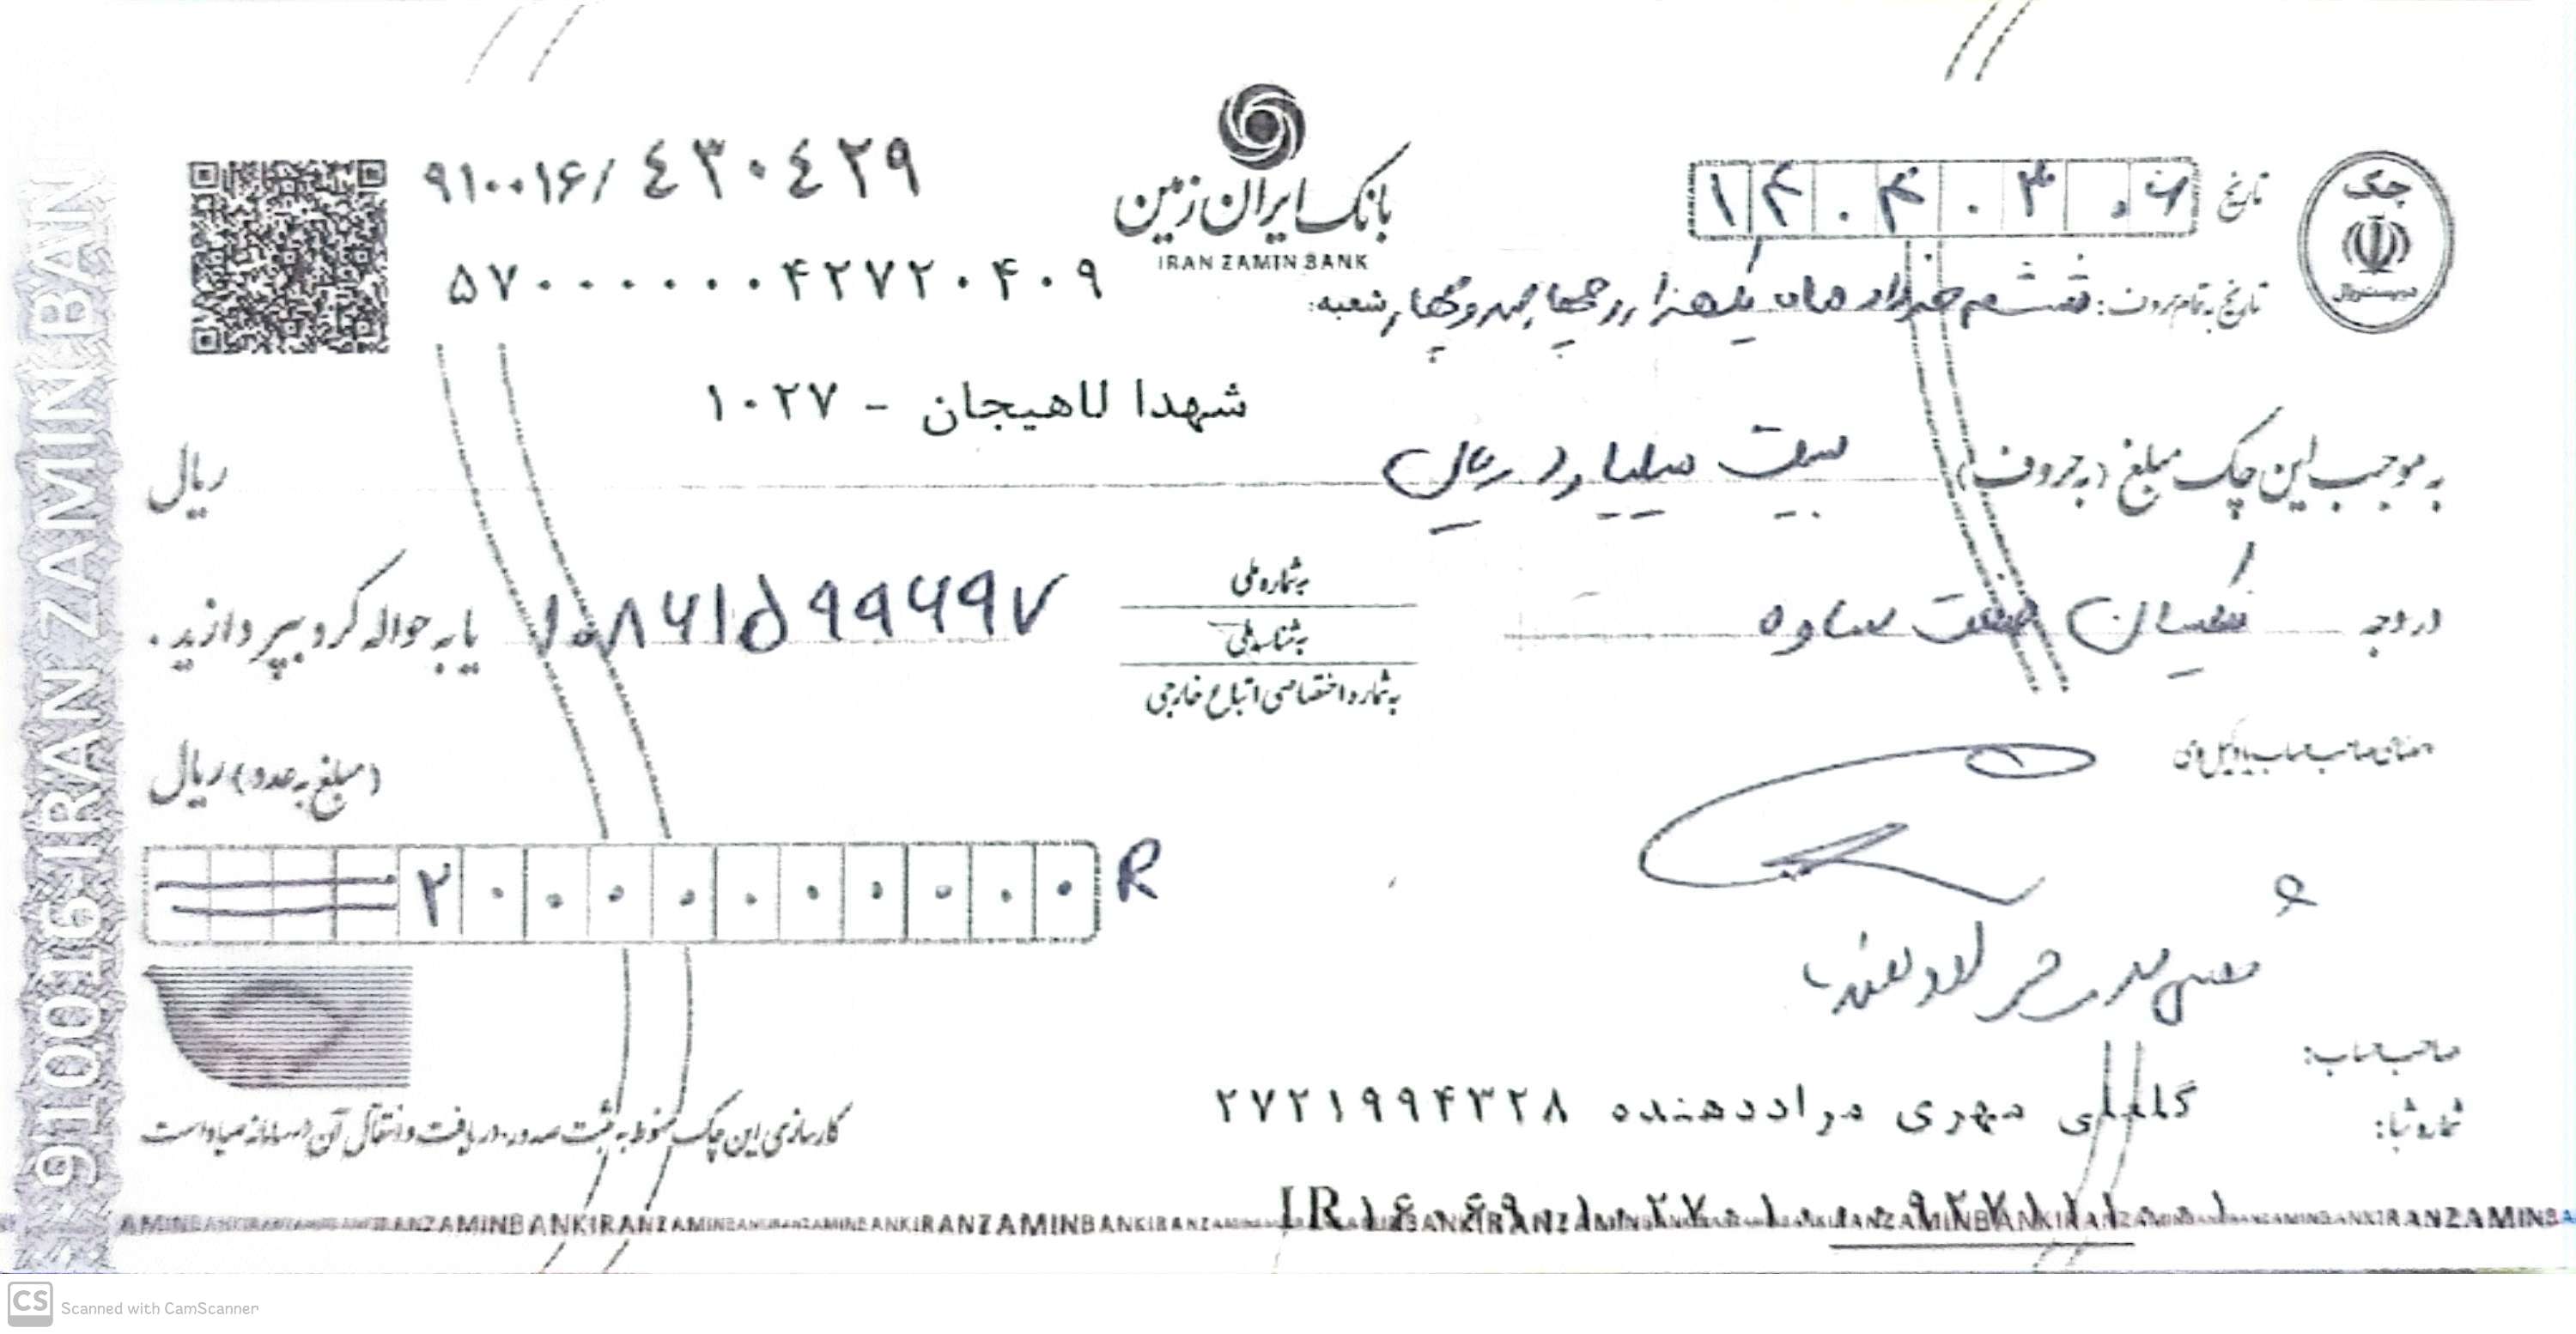 ۹۱۰۰۱۶/ ٤٣٠٤٢٩
بانک ایران زمین
IRAN ZAMIN BANK
چک
تاریخ
۵۷۰۰۰۰۰۰۰۴۲۷۲۰۴۰۹
تاریخ به تمام حروف: ششم خرداد ماه یکهزار و چهارصد و چهار شعبه:
شهدا لاهیجان - ۱۰۲۷
به موجب این چک مبلغ (به حروف) بیست میلیارد ریال ریال
در وجه صنعت ساوه
به شماره ملی
به شناسه ملی
به شماره اختصاصی اتباع خارجی
۱۰۸۶۱۵۹۹۶۹۷ یا به حواله کرد بپردازید.
امضای صاحب حساب یا وکیل وی
(مبلغ به عدد) ریال
۲۰۰۰۰۰۰۰۰۰۰ R
صاحب حساب:
گلعلی مهری مراددهنده ۲۷۲۱۹۹۴۳۲۸
شماره شبا:
کارسازی این چک منوط به ثبت صدور، دریافت و انتقال آن در سامانه صیاد است
IR
910016-IRAN ZAMIN BAN
CS Scanned with CamScanner